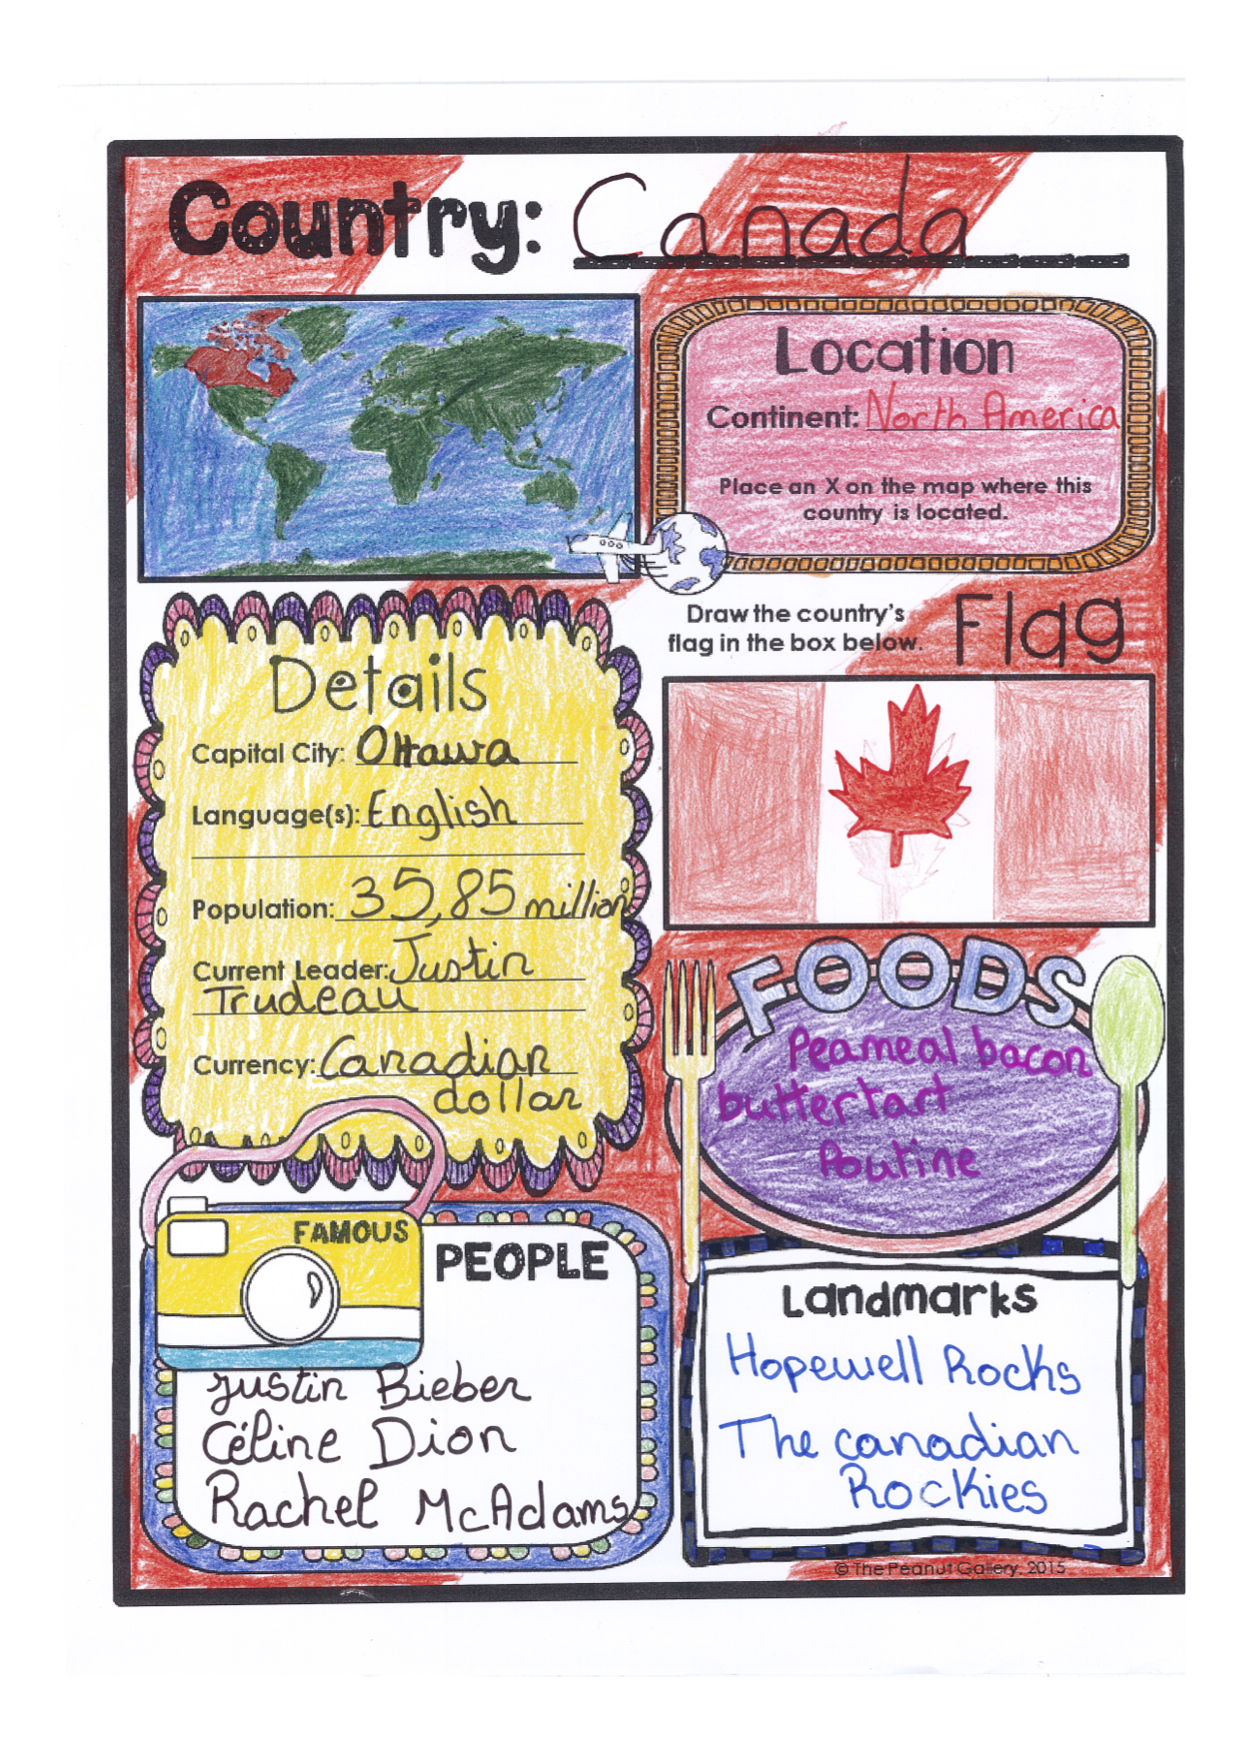 Country: Canada
Location
Continent: North America
Place an X on the map where this
country is located.
Draw the country's
flag in the box below.
Flag
Details
Capital City: Ottawa
Language(s): English
Population: 35,85 million
Current Leader: Justin
Trudeau
Currency: Canadian
dollar
FOODS
Peameal bacon
buttertart
Poutine
FAMOUS
PEOPLE
Justin Bieber
Céline Dion
Rachel McAdams
Landmarks
Hopewell Rocks
The canadian
Rockies
© The Peanut Gallery, 2015